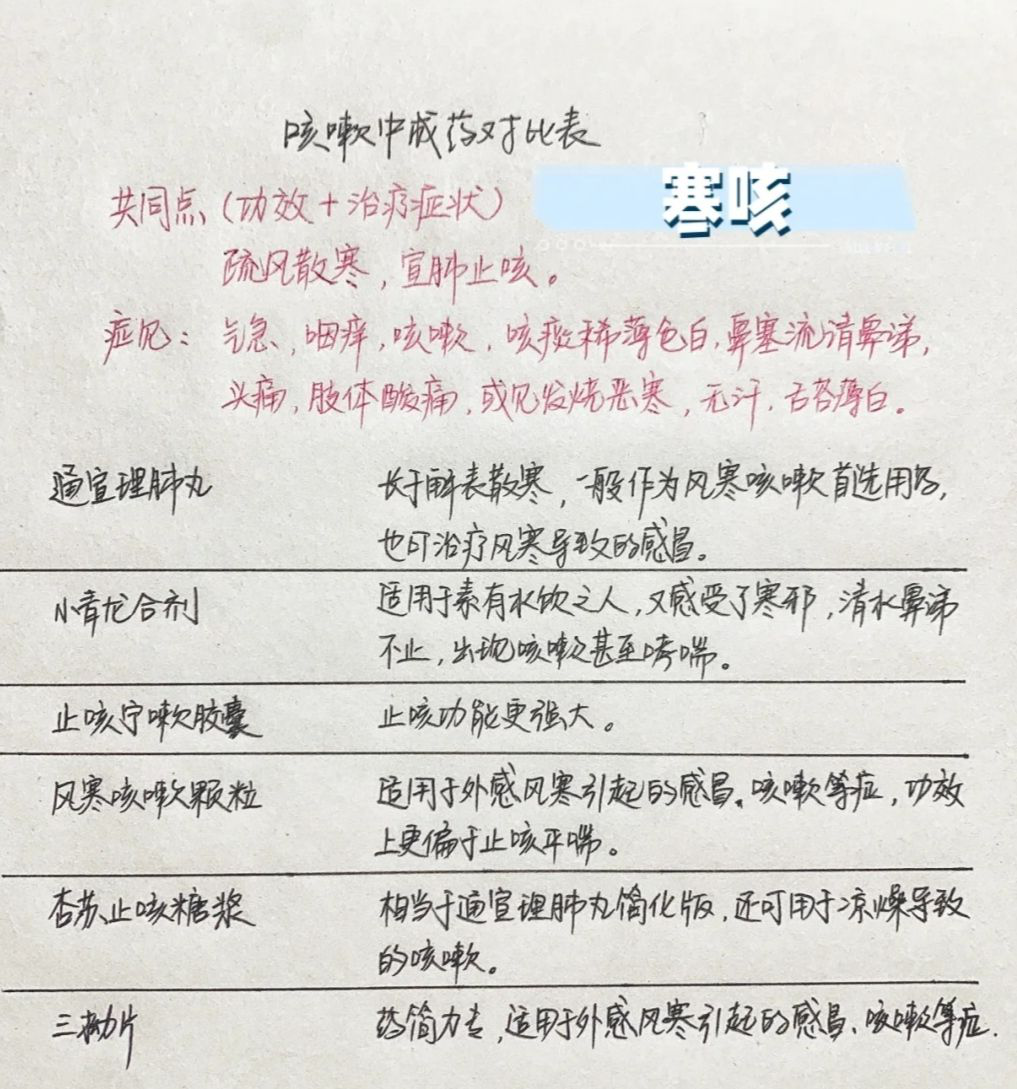 咳嗽中成药对比表
寒咳
共同点(功效+治疗症状)
疏风散寒,宣肺止咳。
症见:气急、咽痒,咳嗽,咳痰稀薄色白,鼻塞流清鼻涕,
头痛,肢体酸痛,或见发烧恶寒,无汗,舌苔薄白。
通宣理肺丸 长于解表散寒,一般作为风寒咳嗽首选用药,
也可治疗风寒导致的感冒。
小青龙合剂 适用于素有水饮之人,又感受了寒邪,清水鼻涕
不止,出现咳嗽甚至哮喘。
止咳宁嗽胶囊 止咳功能更强大。
风寒咳嗽颗粒 适用于外感风寒引起的感冒、咳嗽等症,功效
上更偏于止咳平喘。
杏苏止咳糖浆 相当于通宣理肺丸简化版,还可用于凉燥导致
的咳嗽。
三拗片 药简力专,适用于外感风寒引起的感冒、咳嗽等症.